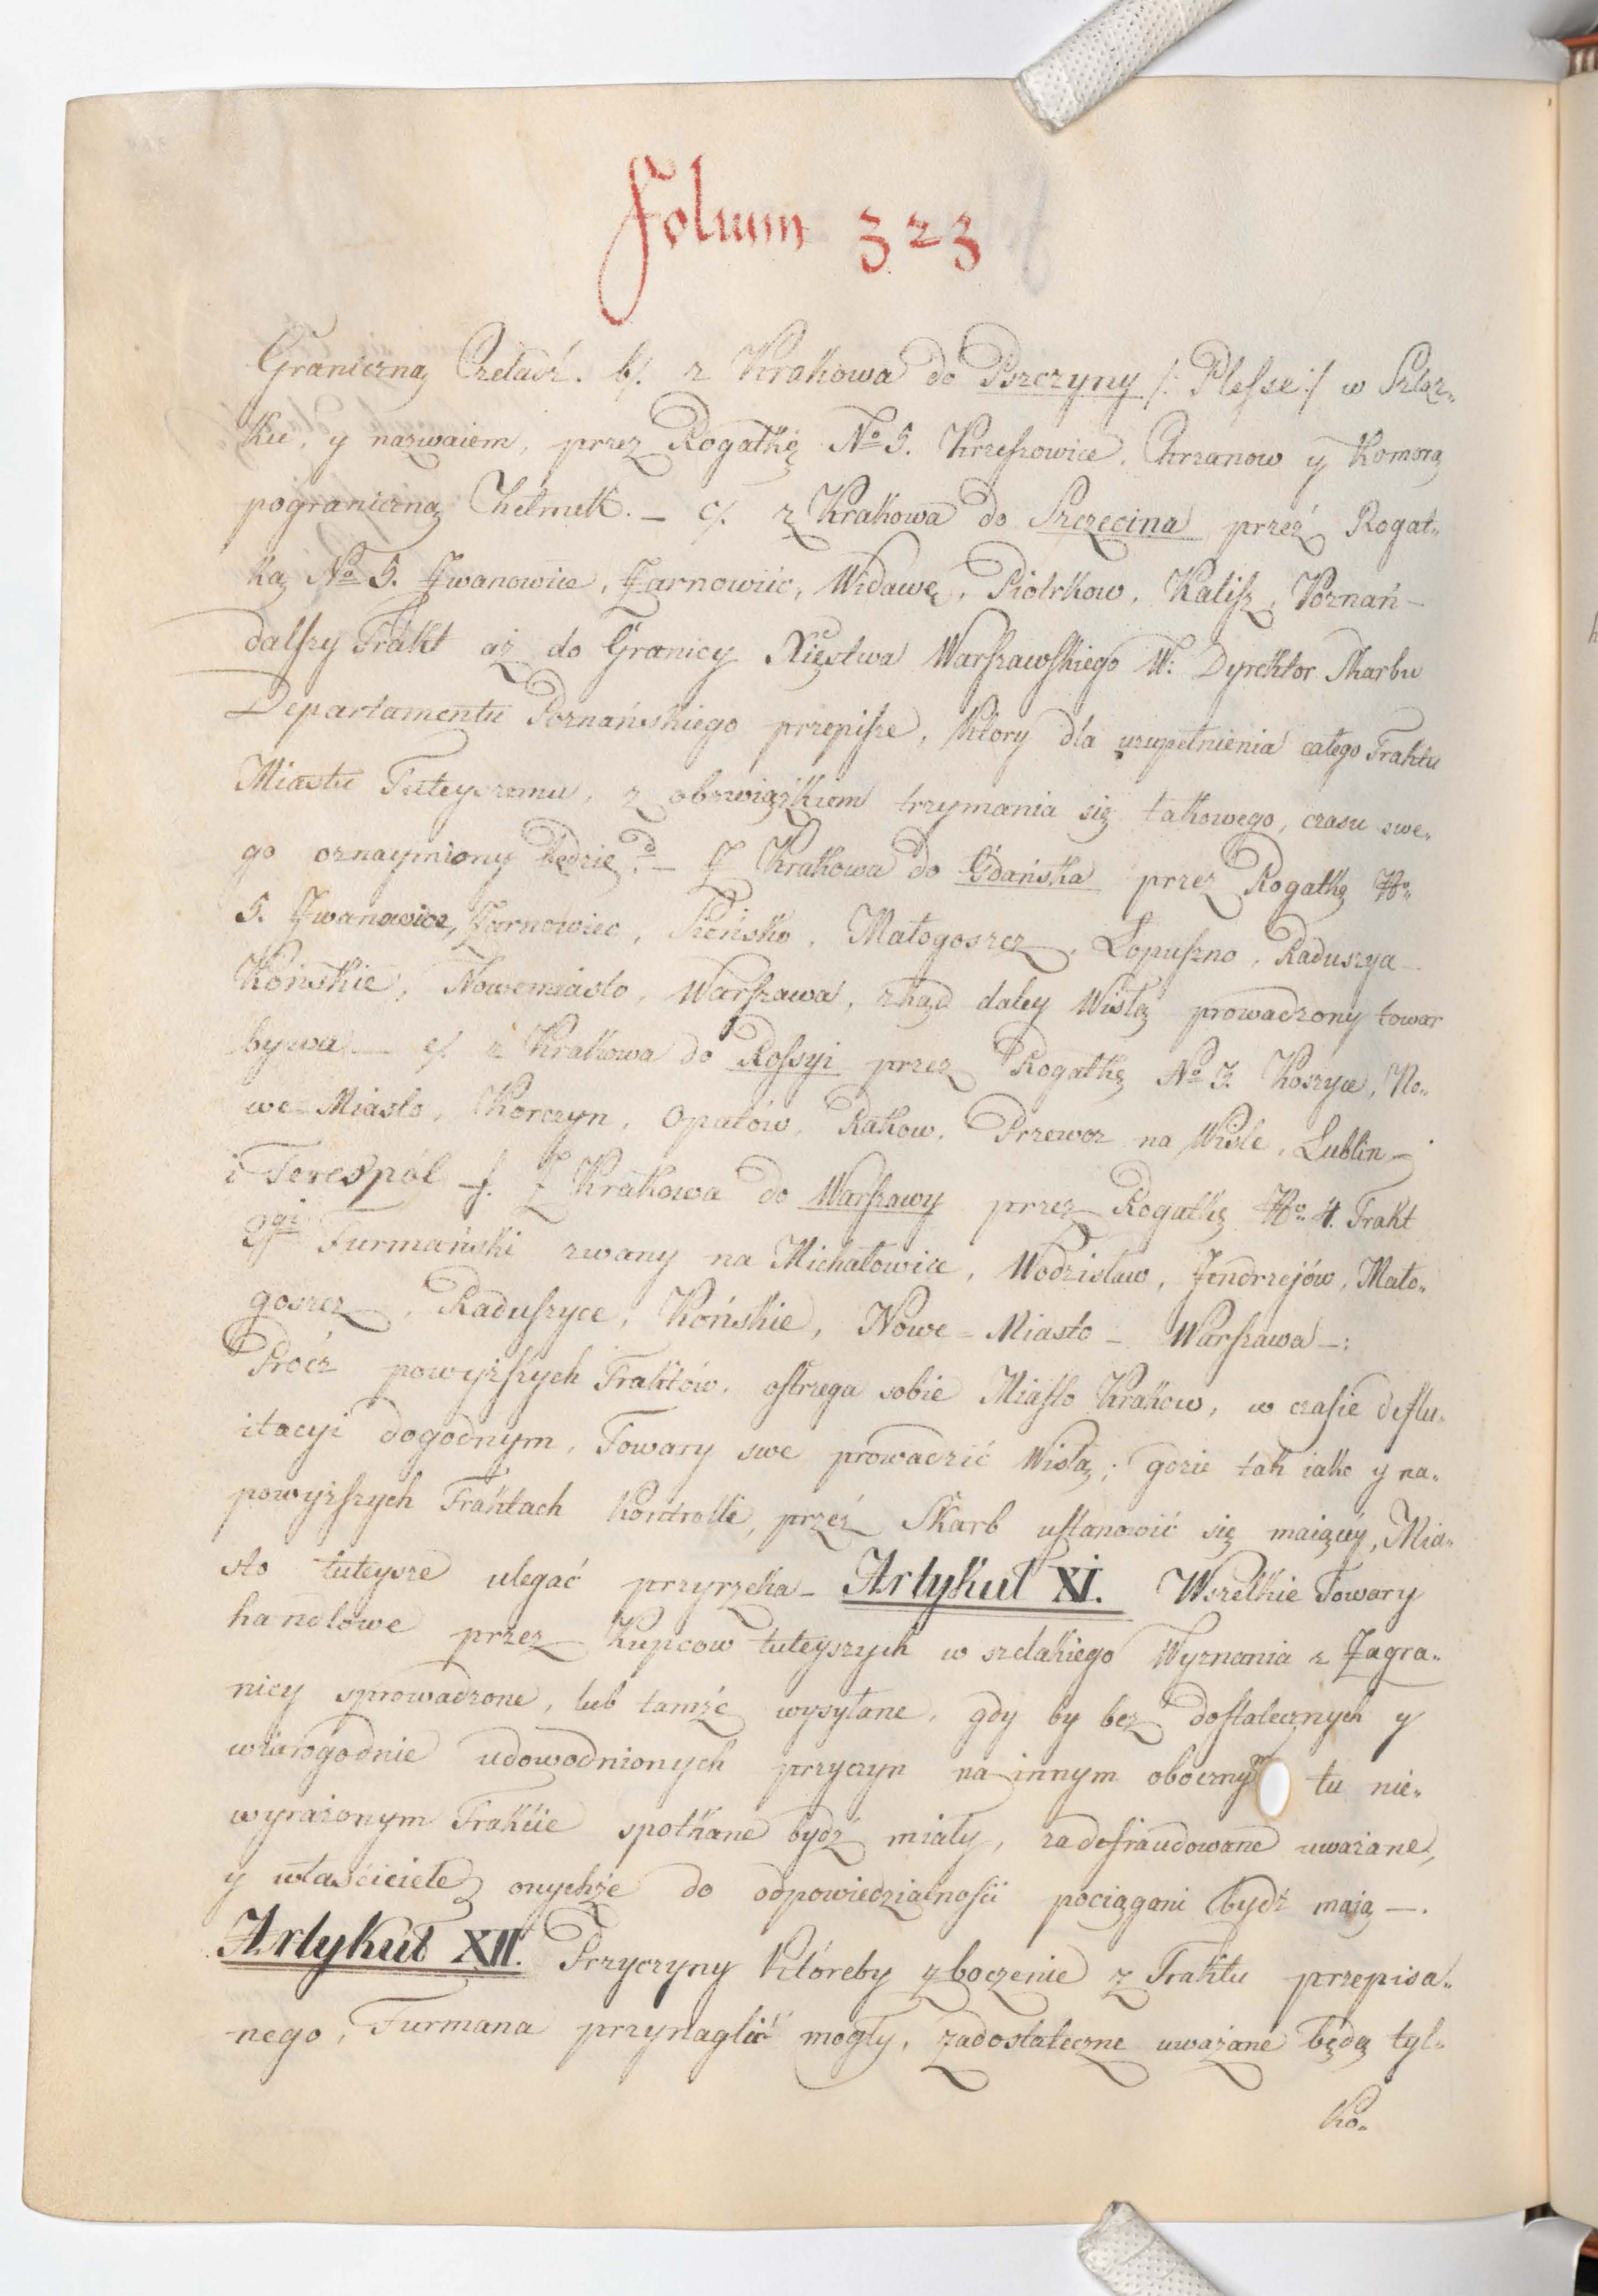 Folium 323
Graniczną Czeladź. b/. z Krakowa do Pszczyny /: Plesse :/ w Szląz„
ku, y nazwaiem, przez Rogatkę No 5. Krzeszowice, Chrzanow y Komorą
pograniczną Chełmek. – c/. z Krakowa do Szczecina przez Rogat„
kę No 5. Iwanowice, Żarnowiec, Widawę, Piotrkow, Kalisz, Poznań –
dalszy Trakt aż do Granicy Xięstwa Warszawskiego W: Dyrektor Skarbu
Departamentu Poznańskiego przepisze, ktory dla uzupełnienia całego Traktu
Miastu Tuteyszemu, z obowiązkiem trzymania się takowego, czasu swe„
go oznaymiony będzie. d – Z Krakowa do Gdańska przez Rogatkę No
5. Iwanowice, Żarnowiec, Małogoszcz, Łopuszno, Raduszya –
Końskie, Nowemiasto, Warszawa, zkąd daley Wisłą prowadzony towar
bywa – e/. z Krakowa do Rossyi przez Rogatkę No 3. Koszyce, No„
we Miasto, Korczyn, Opatów, Rakow, Przewoz na Wiśle, Lublin –
i Terespól – f. Z Krakowa do Warszawy przez Rogatkę No 4. Trakt
2gi Furmański zwany na Michałowice, Wodzisław, Jendrzejów, Mało„
goszcz, Raduszyce, Końskie, Nowe = Miasto – Warszawa –:
Procz powyższych Traktów, ostrzega sobie Miasto Krakow, w czasie deflu„
itacyi dogodnym, Towary swe prowadzić Wisłą; gdzie tak iako y na„
powyższych Traktach Kontrolle, przez Skarb ustanowić się maiącey, Mia„
sto tuteysze ulegać przyrzeka – Artykuł XI. Wszelkie Towary
handlowe przez Kupcow tuteyszych w szelakiego Wyznania z Zagra„
nicy sprowadzone, lub tamże wysyłane, gdy by bez dostatecznych y
wiarogodnie udowodnionych przyczyn na innym obocznym tu nie„
wyrażonym Trakcie spotkane bydź miały, za defraudowane uważane,
y właściciele onychże do odpowiedzialności pociągani bydź maią –.
Artykuł XII. Przyczyny któreby zboczenie z Traktu przepisa„
nego, Furmana przynaglić mogły, zadostateczne uważane będą tyl„
ko„